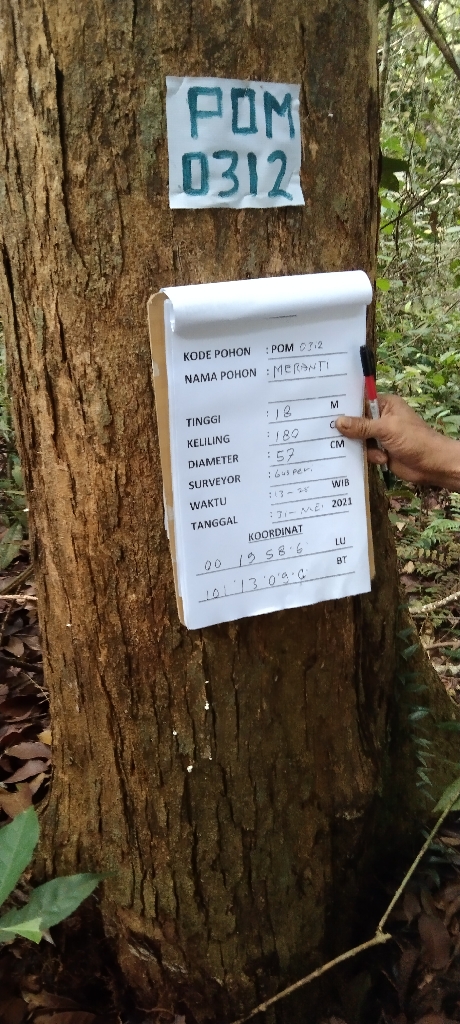 POM
0312
KODE POHON : POM 0312
NAMA POHON : MERANTI
TINGGI : 18 M
KELILING : 180
DIAMETER : 57 CM
SURVEYOR :
WAKTU : 13 - WIB
TANGGAL : 31 - MEI 2021
KOORDINAT
00 19 58.6 LU
101 13 09.6 BT